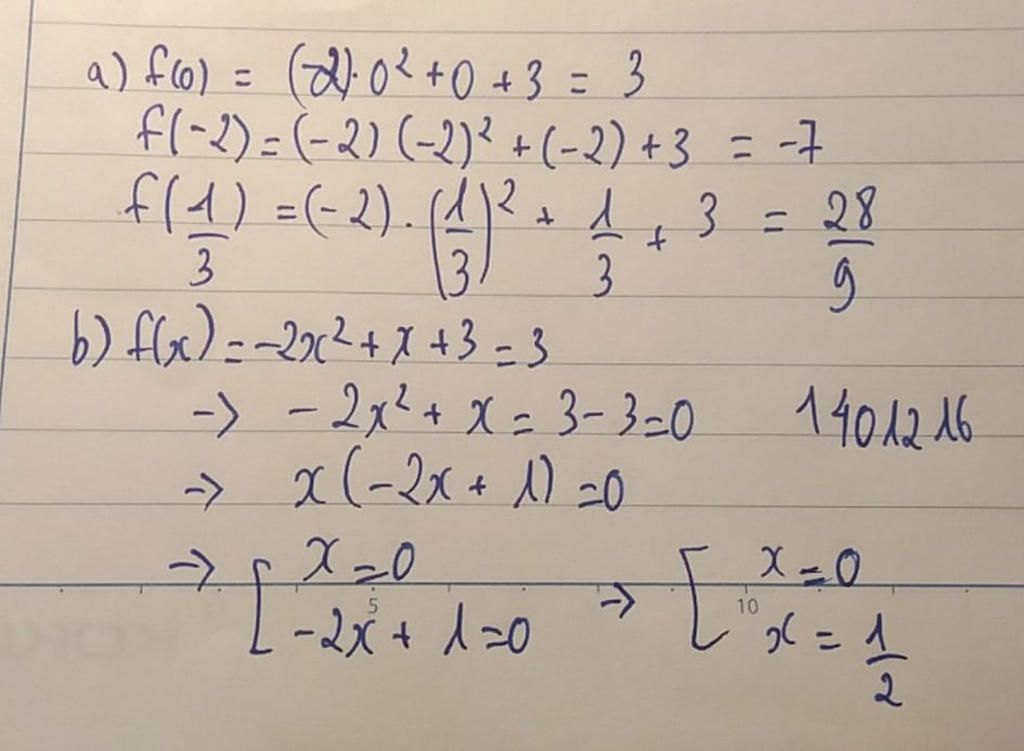 a) f(0) = (-2).0² + 0 + 3 = 3
f(-2) = (-2) (-2)² + (-2) + 3 = -7
f(1/3) = (-2). (1/3)² + 1/3 + 3 = 28/9
b) f(x) = -2x² + x + 3 = 3
-> - 2x² + x = 3 - 3 = 0 1401216
-> x(-2x + 1) = 0
-> [ x = 0 -> [ x = 0
5 10
-2x + 1 = 0 x = 1/2